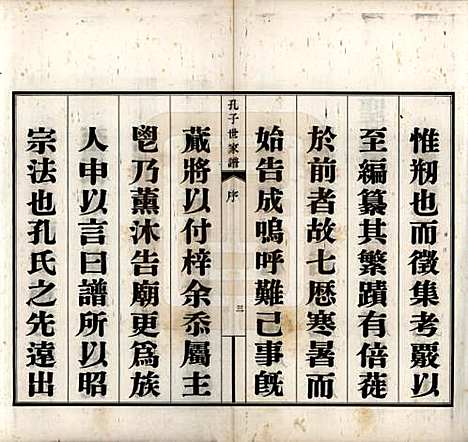 惟剏也而徵集考嚴以
至編纂其繁蹟有倍蓰
於前者故七歷寒暑而
始告成嗚呼難已事旣
孔子世家譜 序 三
蕆將以付梓余忝屬主
鬯乃薰沐告廟更爲族
人申以言曰譜所以昭
宗法也孔氏之先遠出